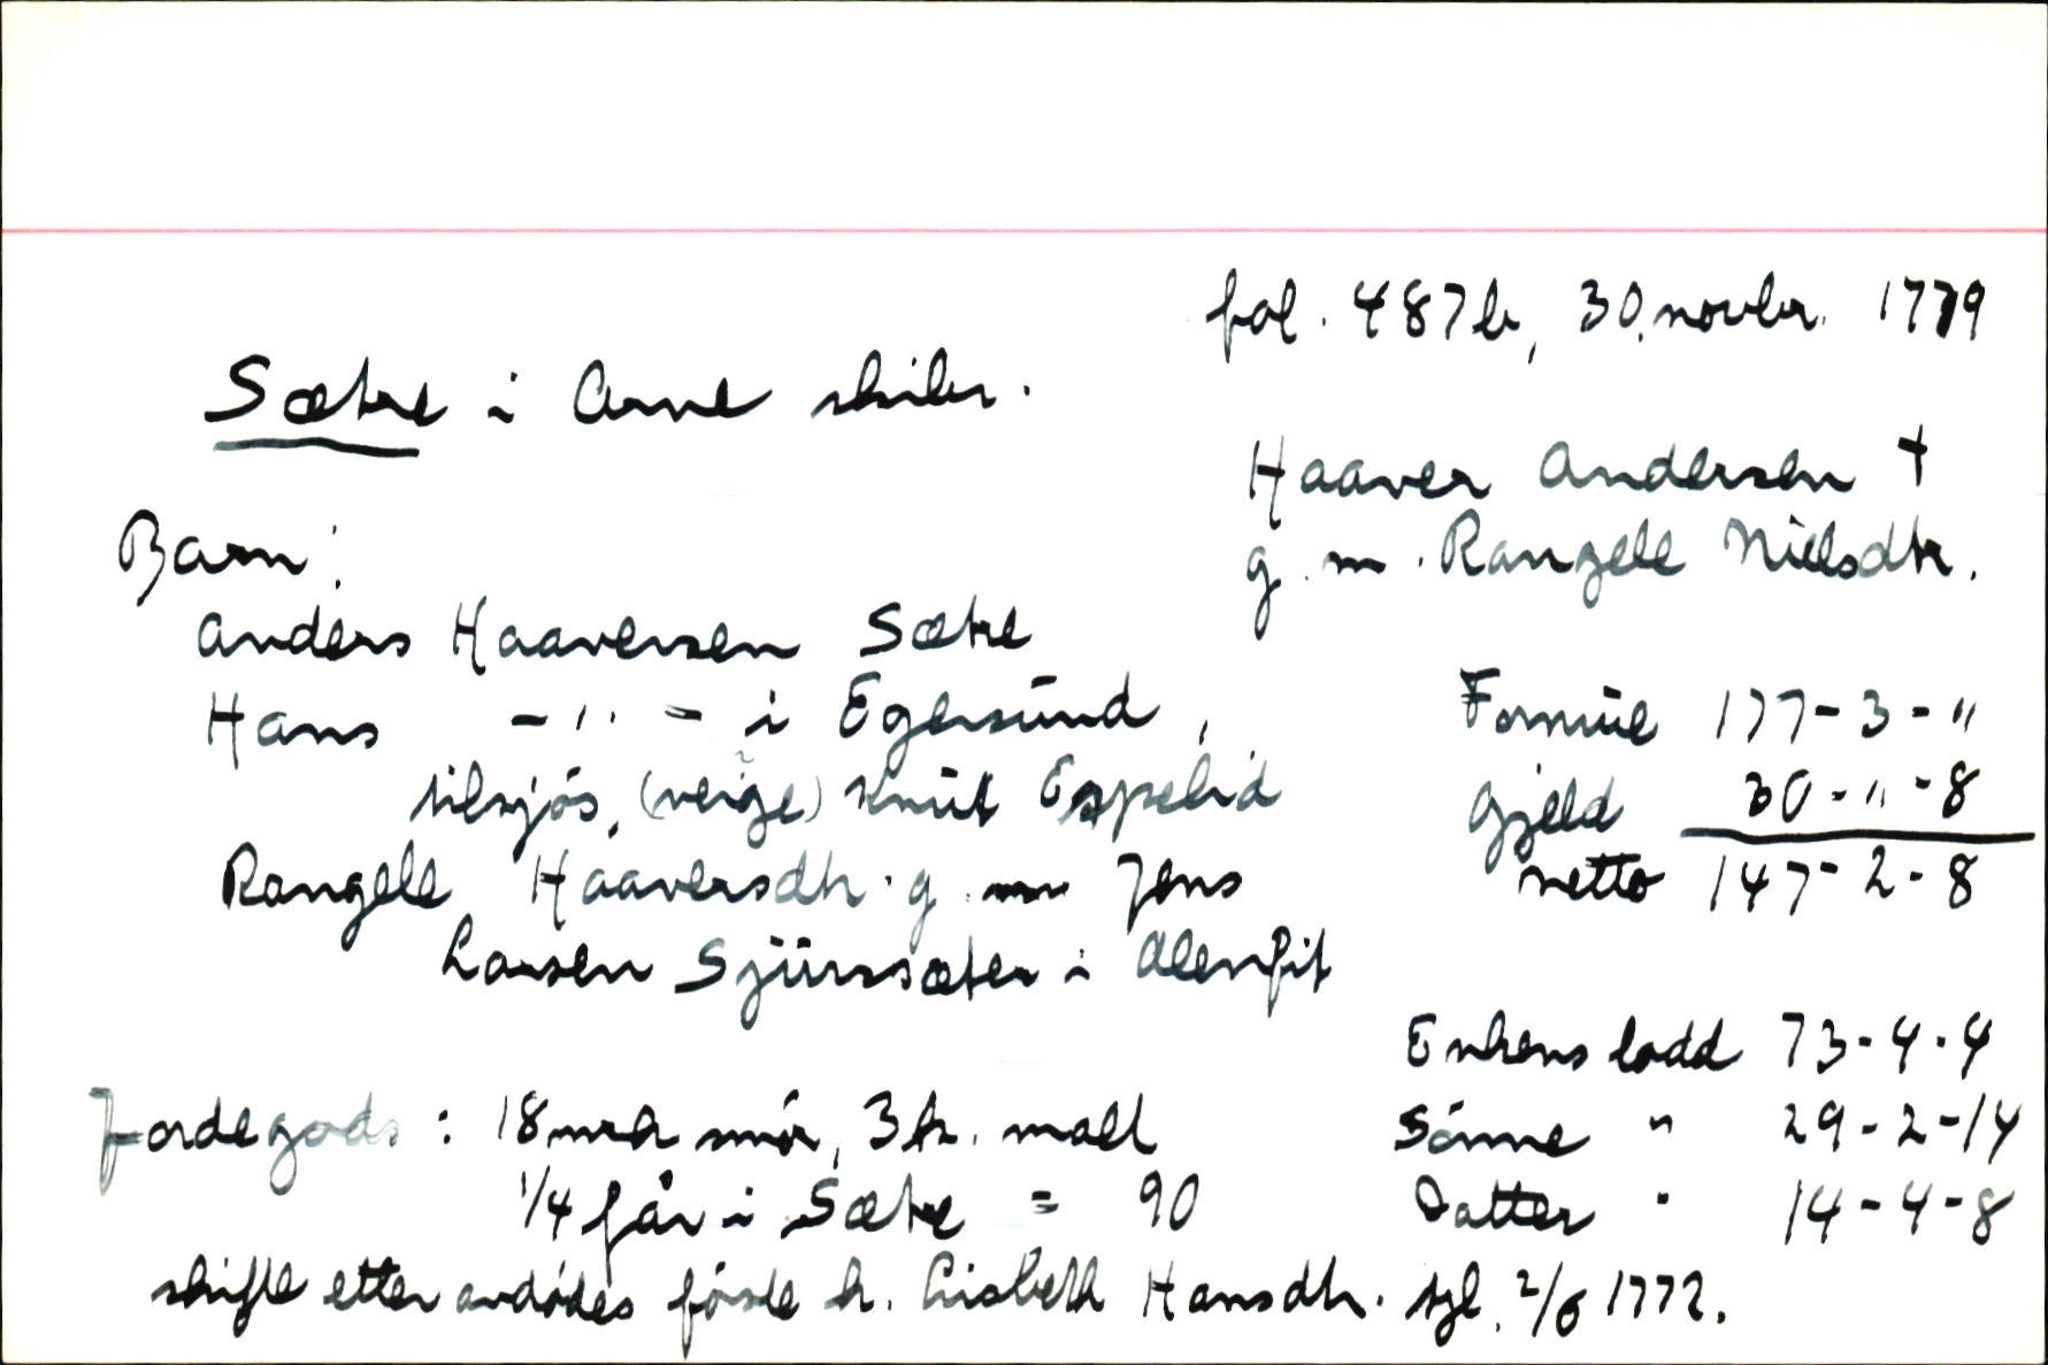 fol. 487b, 30. novbr. 1779
Sætre i Arne skibr.
Haaver Andersen †
g. m. Rangele Nielsdtr.
Barn:
Anders Haaversen Sætre
Hans - " - i Egersund,
tilsjøs, (verge) Knut Espelid
Rangele Haaversdtr. g. m Jens
Larsen Sjurssæter i Alenfit
Formue 177 - 3 - "
Gjeld 30 - " - 8
netto 147 - 2 - 8
Enkens lodd 73 - 4 - 4
Sönne " 29 - 2 - 14
Datter " 14 - 4 - 8
Jordegods: 18 mrk smör, 3 k. malt
1/4 får i Sætre = 90
skifte etter avdødes første h. Lisbeth Hansdtr. tgl. 2/6 1772.